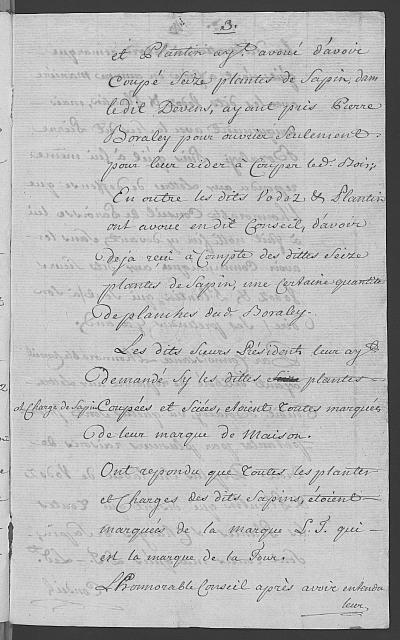 3.
et Plantin ay.t avoué d'avoir
Coupé Seize plantes de Sapin, dans
le dit Devens, ayant pris Pierre
Boraley pour ouvrier seulement
pour leur aider à Couper le d. Bois;
En outre les dits Vodoz & Plantin
ont avoué en dit Conseil, d'avoir
deja reçu à Compte des dittes Seize
plantes de Sapin, une Certaine quantité
de planches dud. Boraley.
Les dits Sieurs Président leur ay.t
demandé sy les dittes plantes
et Charge de Sapin Coupées et Sciées, etoient toutes marquées
de leur marque de Maison.
Ont repondu que toutes les plantes
et Charges des dits Sapins, étoient
marqués de la marque L. T. qui
est la marque de la Tour.
L'honnorable Conseil après avoir entendu
leur